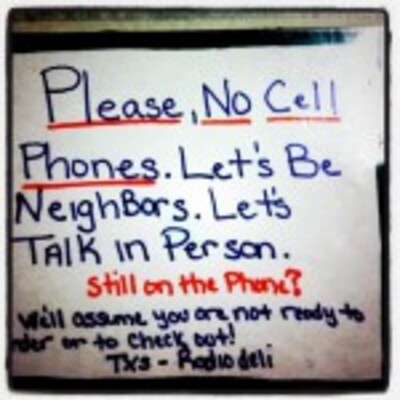 Please, No Cell
Phones. Let's Be
Neighbors. Let's
Talk in Person.
Still on the Phone?
Will assume you are not ready to
der or to check out!
Tx's - Radio deli